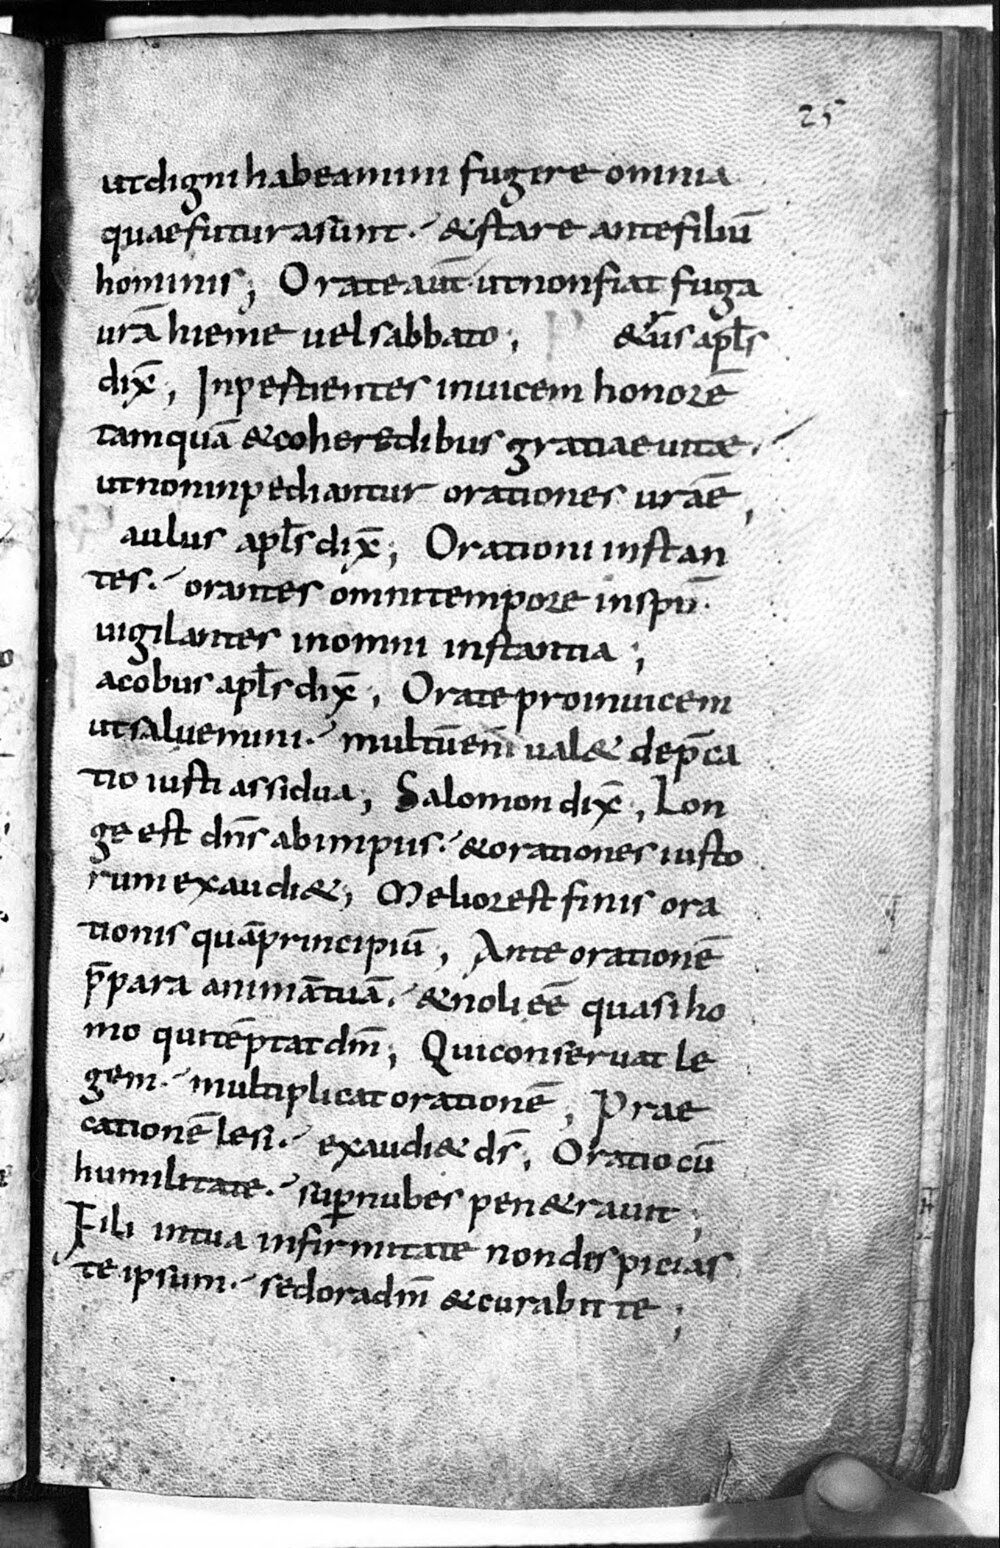 25
ut digni habeamini fugire omnia
quae futura sunt. & stare ante filiū
hominis; Orate aūt ut non fiat fuga
urā hieme uel sabbato; &rus apls
dix̄; Inpertientes inuicem honorē
tamquā & coheredibus gratiae uitae.
ut non inpediantur orationes uraē;
aulus apls dix̄; Orationi instan
tes. orantes omni tempore in spū.
uigilantes in omni instantia;
acobus apls dix̄; Orate pro inuicem
ut saluemini. multū enī ual& dep̄ca
tio iusti assidua; Salomon dix̄; Lon
ge est dn̄s ab impiis. & orationes iusto
rum exaudi&; Melior est finis ora
tionis quā principiū; Ante orationē
p̄para animā tuā. & noli eē quasi ho
mo qui tēptat dm̄; Qui conseruat le
gem. multiplicat orationē; Prae
cationē lesi. exaudi& ds̄; Oratio cū
humilitate. sup nubes pen&rauit;
Fili in tua infirmitate non dispicias
te ipsum. sed ora dm̄ & curabit te;